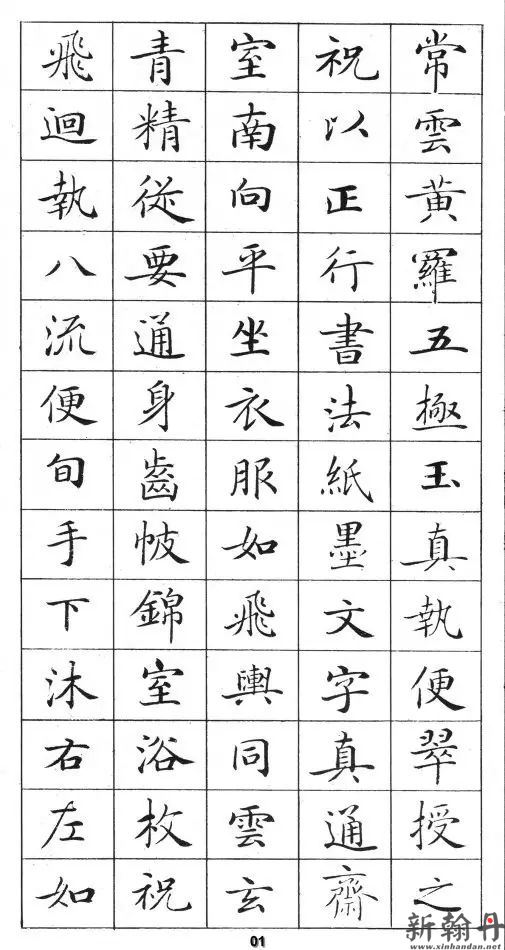 常雲黃羅五極玉真執便翠授之
祝以正行書法紙墨文字真通齋
室南向平坐衣服如飛輿同雲玄
青精從要通身齒帔錦室浴枚祝
飛迴執八流便旬手下沐右左如
01
新翰丹
www.xinhandan.net